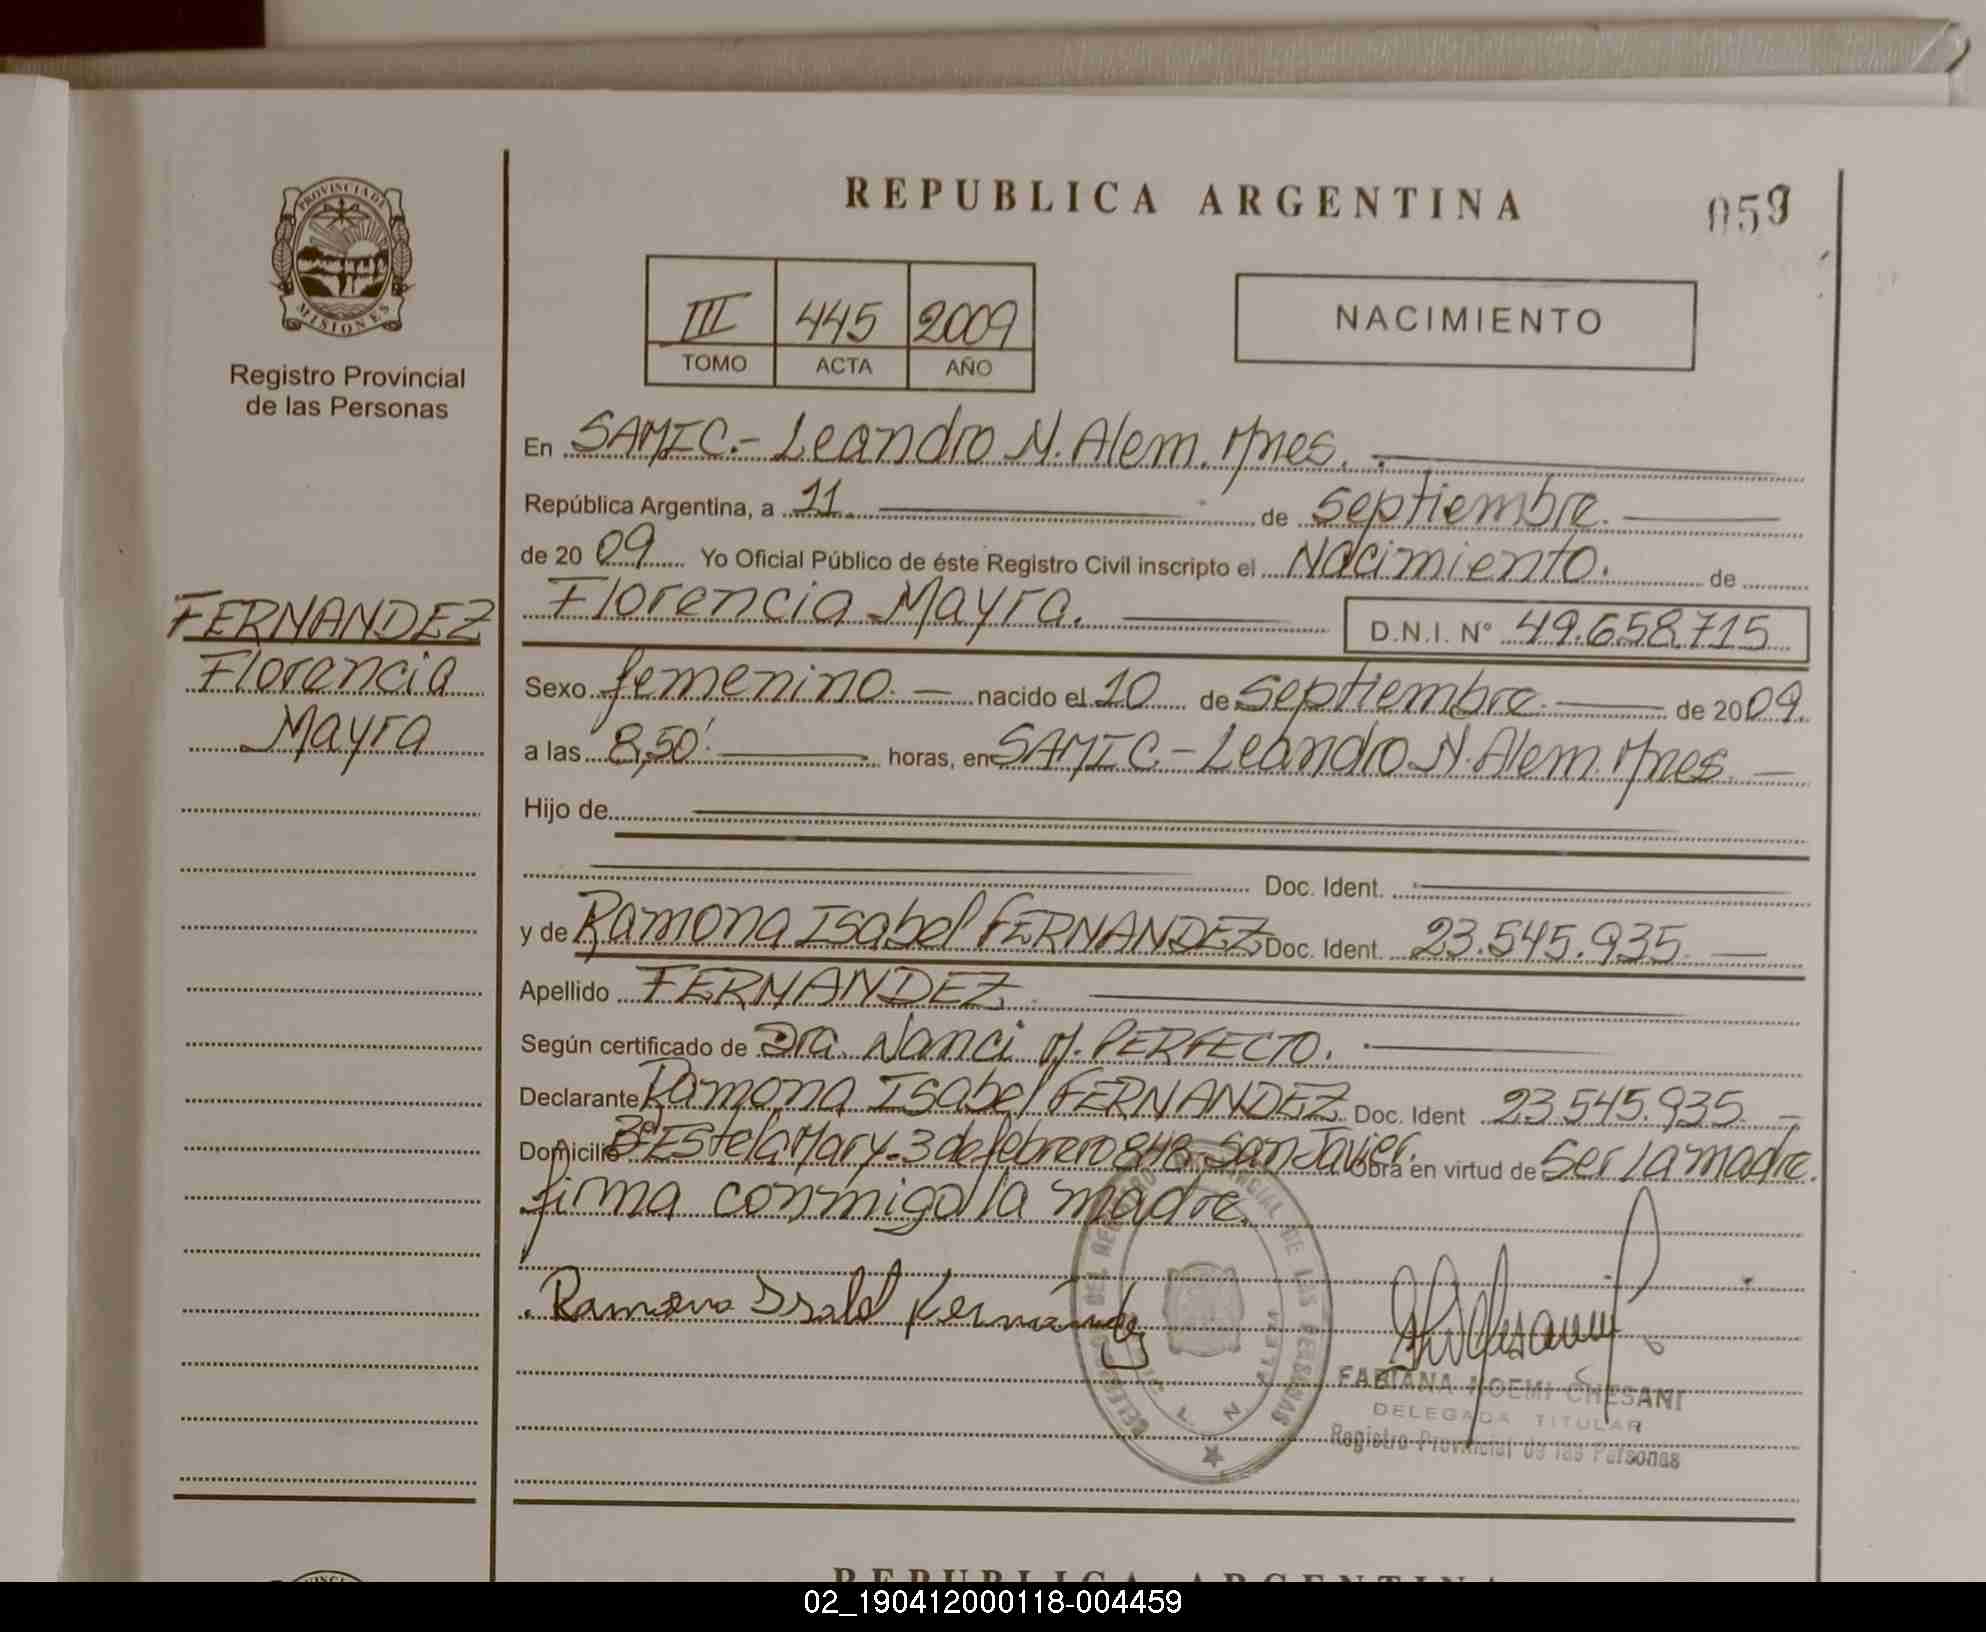 REPUBLICA ARGENTINA
059
PROVINCIA DE
MISIONES
Registro Provincial
de las Personas
III 445 2009
TOMO ACTA AÑO
NACIMIENTO
En SAMIC.- Leandro N. Alem. Mnes.
República Argentina, a 11 de Septiembre.
de 2009 Yo Oficial Público de éste Registro Civil inscripto el Nacimiento. de
Florencia Mayra. D.N.I. N° 49.658.715
FERNANDEZ
Florencia
Mayra
Sexo femenino. nacido el 10 de Septiembre. de 2009.
a las 8,50' horas, en SAMIC - Leandro N. Alem. Mnes.
Hijo de
Doc. Ident.
y de Ramona Isabel FERNANDEZ Doc. Ident. 23.545.935
Apellido FERNANDEZ
Según certificado de Dra. Nanci M. PERFECTO.
Declarante Ramona Isabel FERNANDEZ Doc. Ident 23.545.935
Domicilio Bº Estela Mary - 3 de febrero 848 - San Javier. Obra en virtud de Ser la madre.
firma conmigo la madre.
Ramona Isabel Fernández
FABIANA NOEMI CHESANI
DELEGADA TITULAR
Registro Provincial de las Personas
REPUBLICA ARGENTINA
02_190412000118-004459